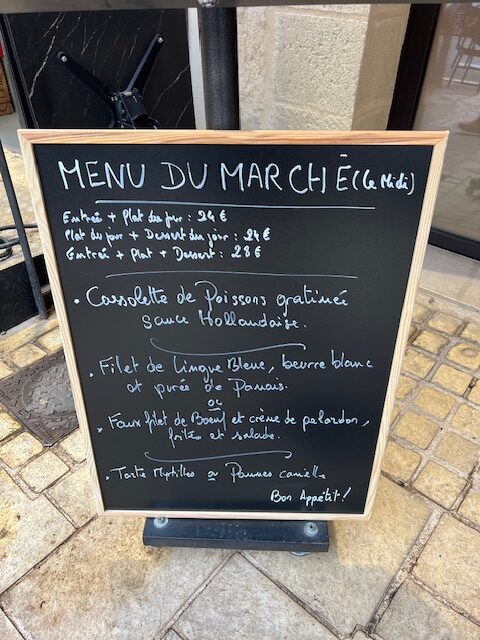 MENU DU MARCHÉ (Le Midi)
Entrée + Plat du jour : 24 €
Plat du jour + Dessert du jour : 24 €
Entrée + Plat + Dessert : 28 €
• Cassolette de Poissons gratinée
sauce Hollandaise.
• Filet de Lingue Bleue, beurre blanc
et purée de Panais.
ou
• Faux filet de Boeuf et crème de pelardon,
frites et salade.
• Tarte Myrtilles ou Pommes canelle
Bon Appétit !